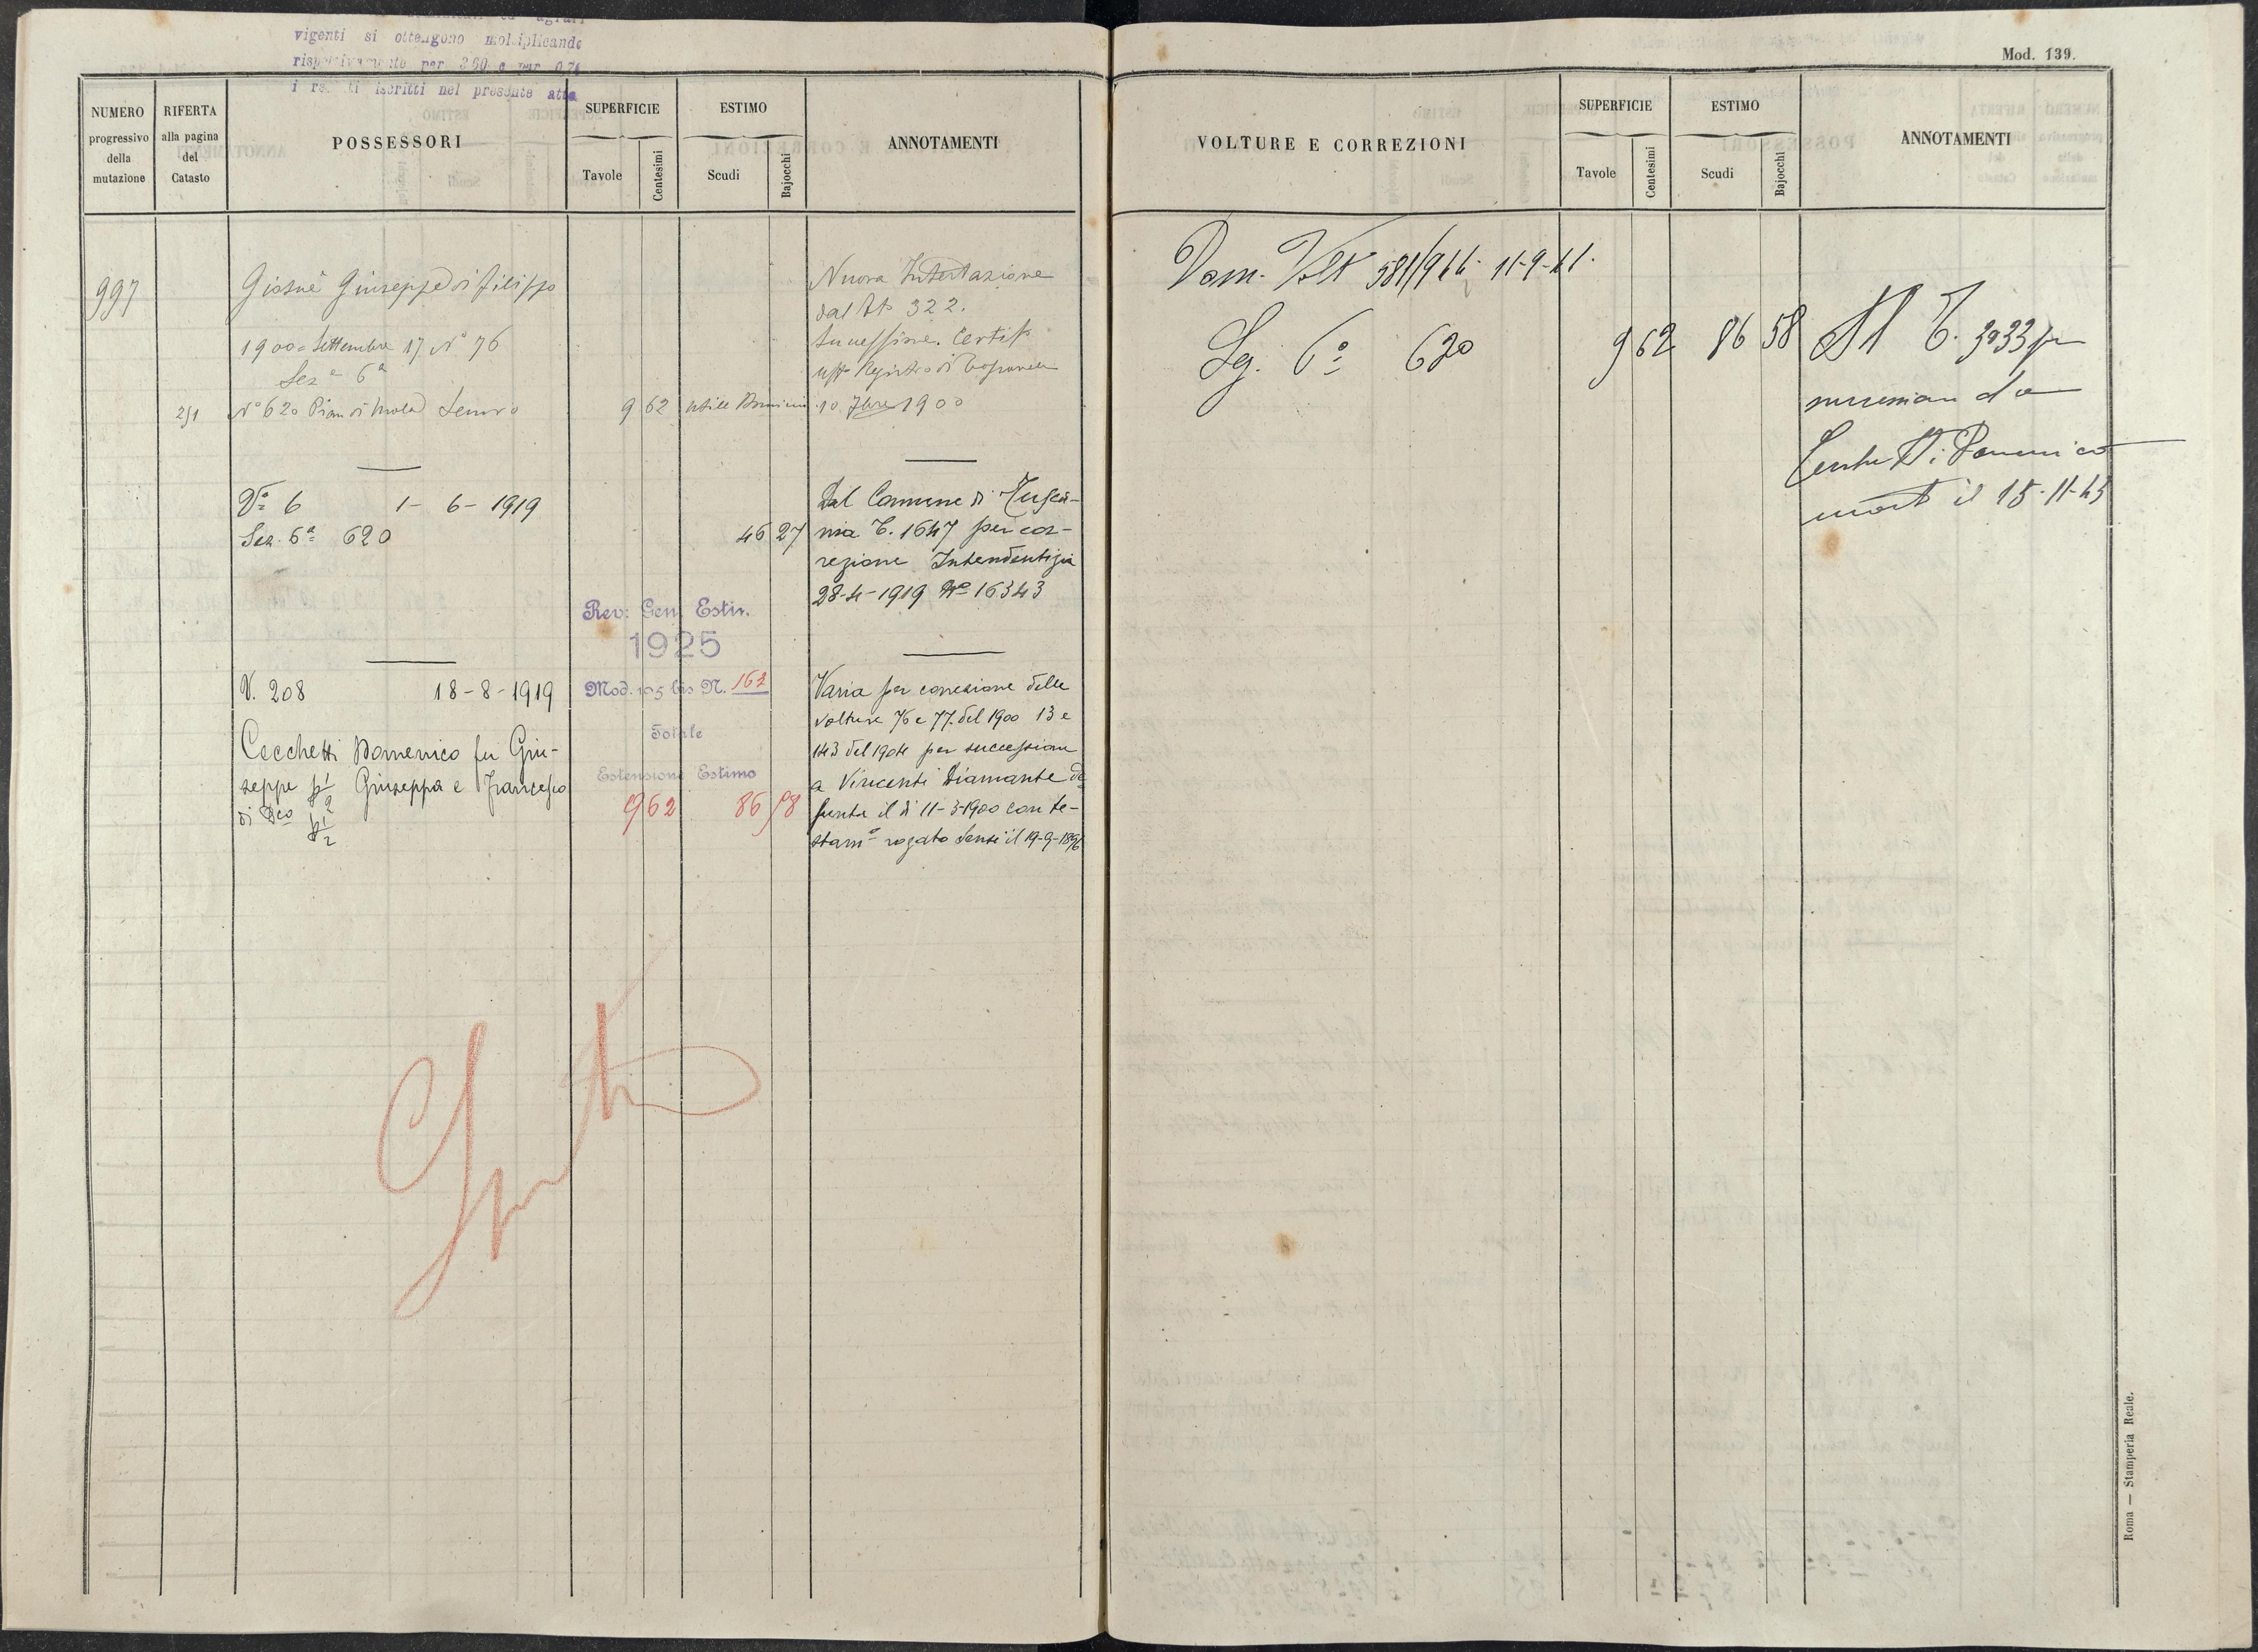 vigenti si ottengono moltiplicando
rispettivamente per 3.60 e per 0.74
i redditi iscritti nel presente atto
NUMERO
progressivo
della
mutazione
RIFERTA
alla pagina
del
Catasto
POSSESSORI
SUPERFICIE
Tavole
Centesimi
ESTIMO
Scudi
Bajocchi
ANNOTAMENTI
997
Giosuè Giuseppe di Filippo
1900 = Settembre 17 N° 76
Sez.e 6a
251 N° 620 Pian di Mola Semvo 9 62 utile Dominio
Nuova Intestazione
dal 322.
Successione. Certif.
uff° Registro di
10 7bre 1900
Va 6 1-6-1919
Sez. 6a 620 46 27
Dal Comune di
nia C. 1647 per cor-
rezione Intendentizia
28-4-1919 No 16343
Rev: Gen. Estim.
1925
Mod. 105 bis N. 162
Totale
Estensione Estimo
9 62 86 58
V. 208 18-8-1919
Cecchetti Domenico fu Giu-
seppe p 1/2 Giuseppa e Francesco
di Dco p 1/2
Varia per correzione delle
volture 76 e 77 del 1900 13 e
143 del 1904 per successione
a Vincenti Diamante de
funta il dì 11-3-1900 con te-
stam° rogato Sensi il 19-9-1896
Mod. 139.
VOLTURE E CORREZIONI
SUPERFICIE
Tavole
Centesimi
ESTIMO
Scudi
Bajocchi
ANNOTAMENTI
Dom. Volt 581/944 11-9-41.
Sez. 6a 620 9 62 86 58
Al C. 3933 per
successione da
Domenico
morto il 15-11-43
Roma — Stamperia Reale.